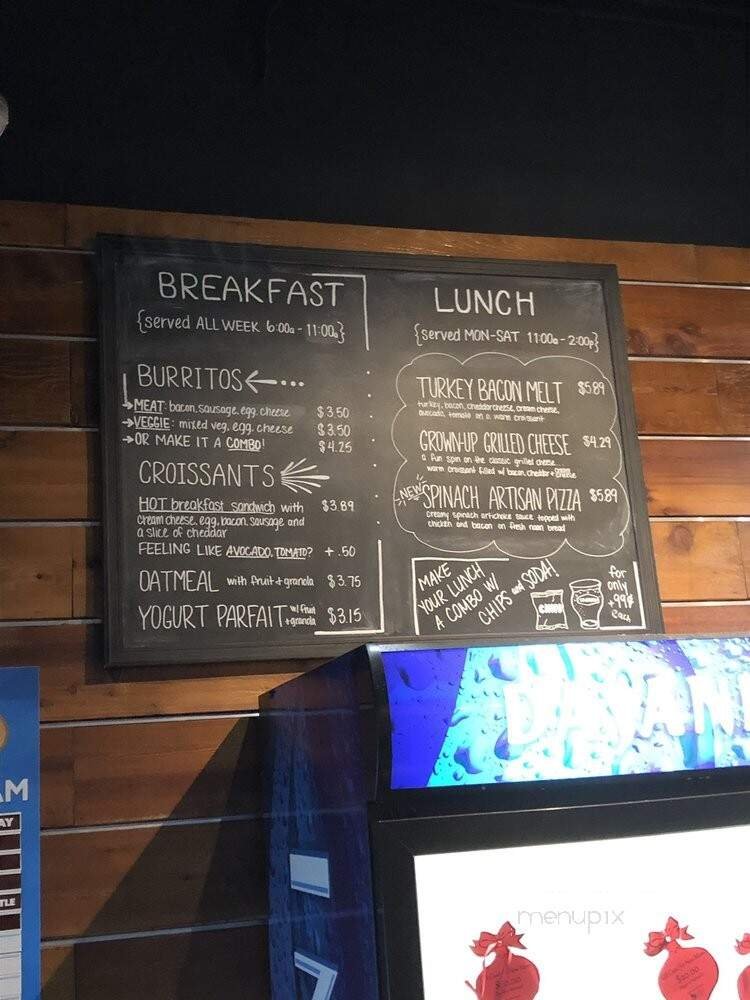 BREAKFAST
{served ALL WEEK 6:00a - 11:00a}
BURRITOS
MEAT: bacon, sausage, egg, cheese $3.50
VEGGIE: mixed veg, egg, cheese $3.50
OR MAKE IT A COMBO! $4.25
CROISSANTS
HOT breakfast sandwich with $3.89
cream cheese, egg, bacon, sausage and
a slice of cheddar
FEELING LIKE AVOCADO, TOMATO? +.50
OATMEAL with fruit + granola $3.75
YOGURT PARFAIT w/ fruit + granola $3.15
LUNCH
{served MON-SAT 11:00a - 2:00p}
TURKEY BACON MELT $5.89
turkey, bacon, cheddar cheese, cream cheese,
avocado, tomato on a warm croissant
GROWN-UP GRILLED CHEESE $4.29
a fun spin on the classic grilled cheese...
warm croissant filled w/ bacon, cheddar + cream cheese
NEW SPINACH ARTISAN PIZZA $5.89
creamy spinach artichoke sauce topped with
chicken and bacon on fresh naan bread
MAKE
YOUR LUNCH
A COMBO W/
CHIPS and SODA!
for
only
+99¢
each
AM
AY
TLE
menupix